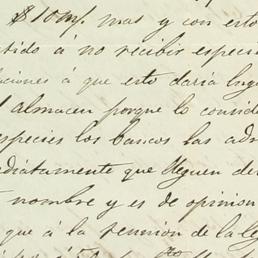 $10 m/. mas y con esto
tido á no recibir especi
aciones á que esto daria luga
l almacen porque lo consid
especies los bancos las adm
ediatamente que lleguen de
nombre y es de opinion
que á la reunion de la le